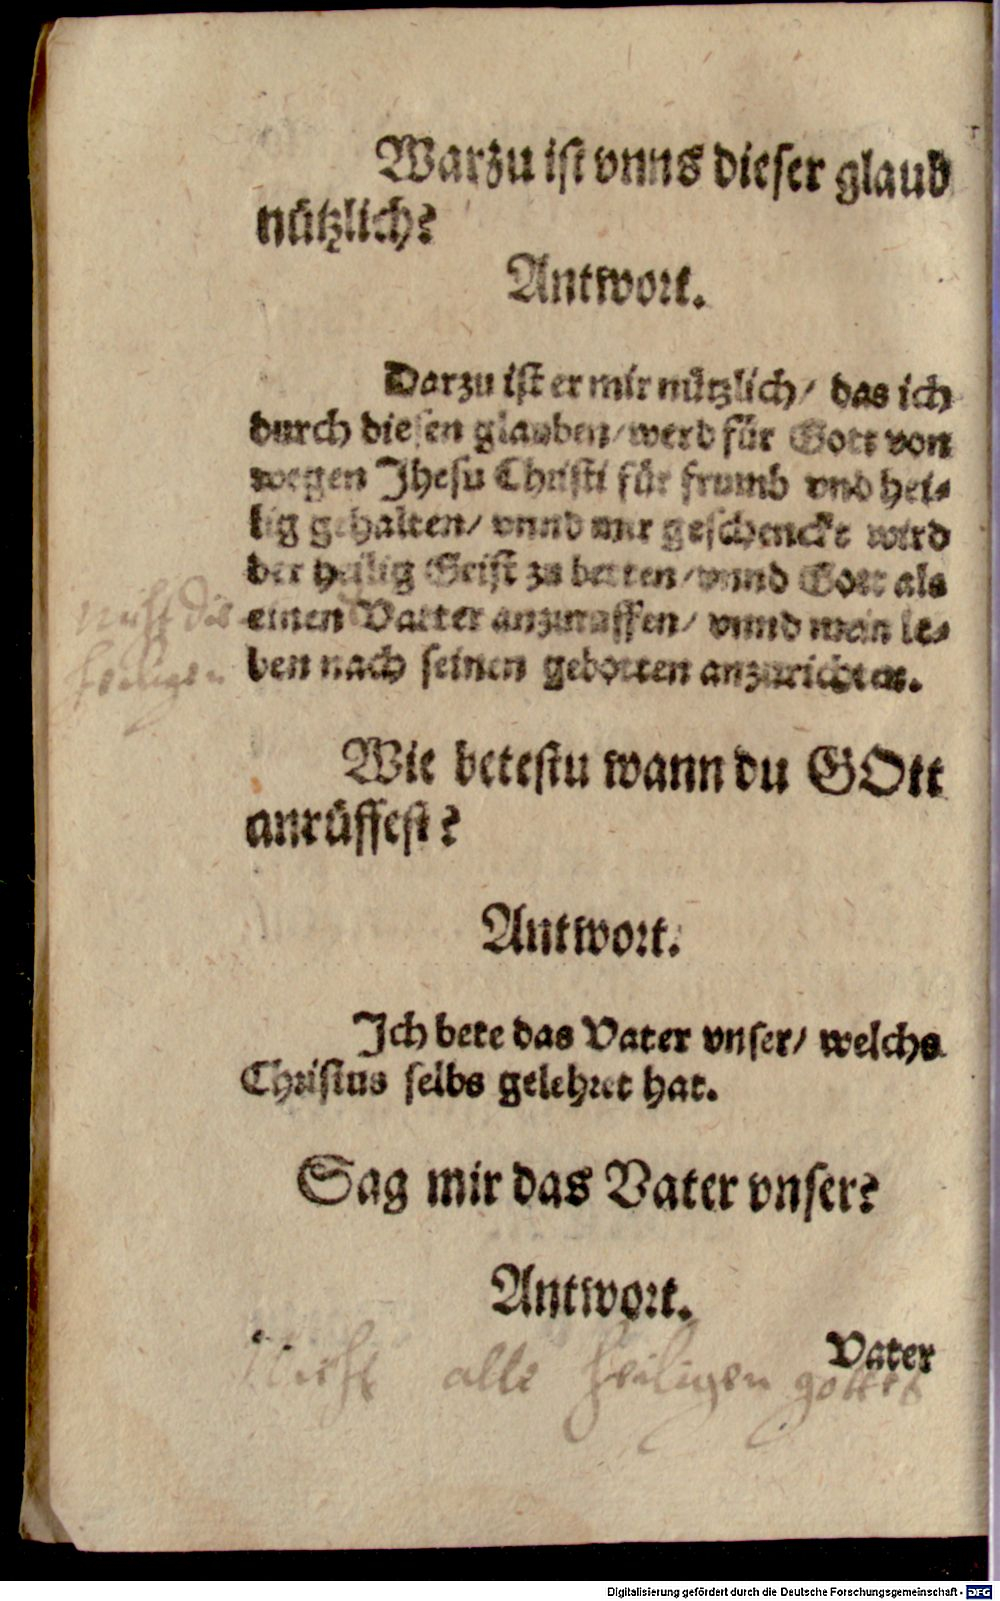 Warzu ist vnns dieser glaub
nützlich?
Antwort.
Darzu ist er mir nützlich/ das ich
durch diesen glauben/ werd für Gott von
wegen Jhesu Christi für frumb vnd hei-
lig gehalten/ vnnd mir geschenckt wird
der heilig Geist zu betten/ vnnd Gott als
einen Vatter anzuruffen/ vnnd mein le-
ben nach seinen gebotten anzurichten.
nicht die
heiligen
Wie betestu wann du GOtt
anrüffest?
Antwort.
Ich bete das Vater vnser/ welchs
Christus selbs gelehret hat.
Sag mir das Vater vnser?
Antwort.
Vater
Nicht alle heiligen gottes
Digitalisierung gefördert durch die Deutsche Forschungsgemeinschaft - DFG